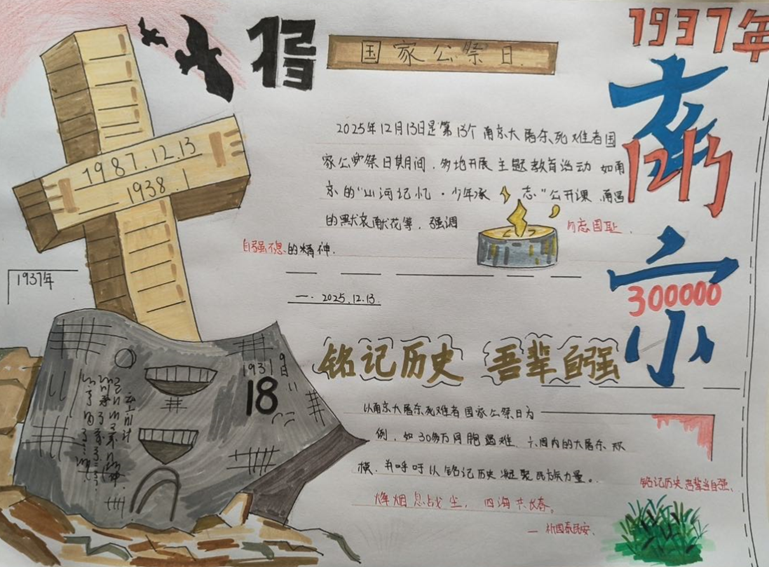 1213
国家公祭日
1937年
南京
1213
300000
1987.12.13
1938.1
2025年12月13日是第13个南京大屠杀死难者国
家公祭日期间，多地开展主题教育活动 如南
京的“山河记忆·少年承 志”公开课，
的默哀献花等，强调 勿忘国耻
自强不息的精神.
1937年
一. 2025.12.13.
铭记历史 吾辈自强
1931 9
18
以南京大屠杀死难者国家公祭日为
例，如30多万同胞遇难 六周内的大屠杀
模，并呼吁以铭记历史凝聚民族力量。
铭记历史 吾辈当自强、
烽烟 战 四海
— 国泰民安.